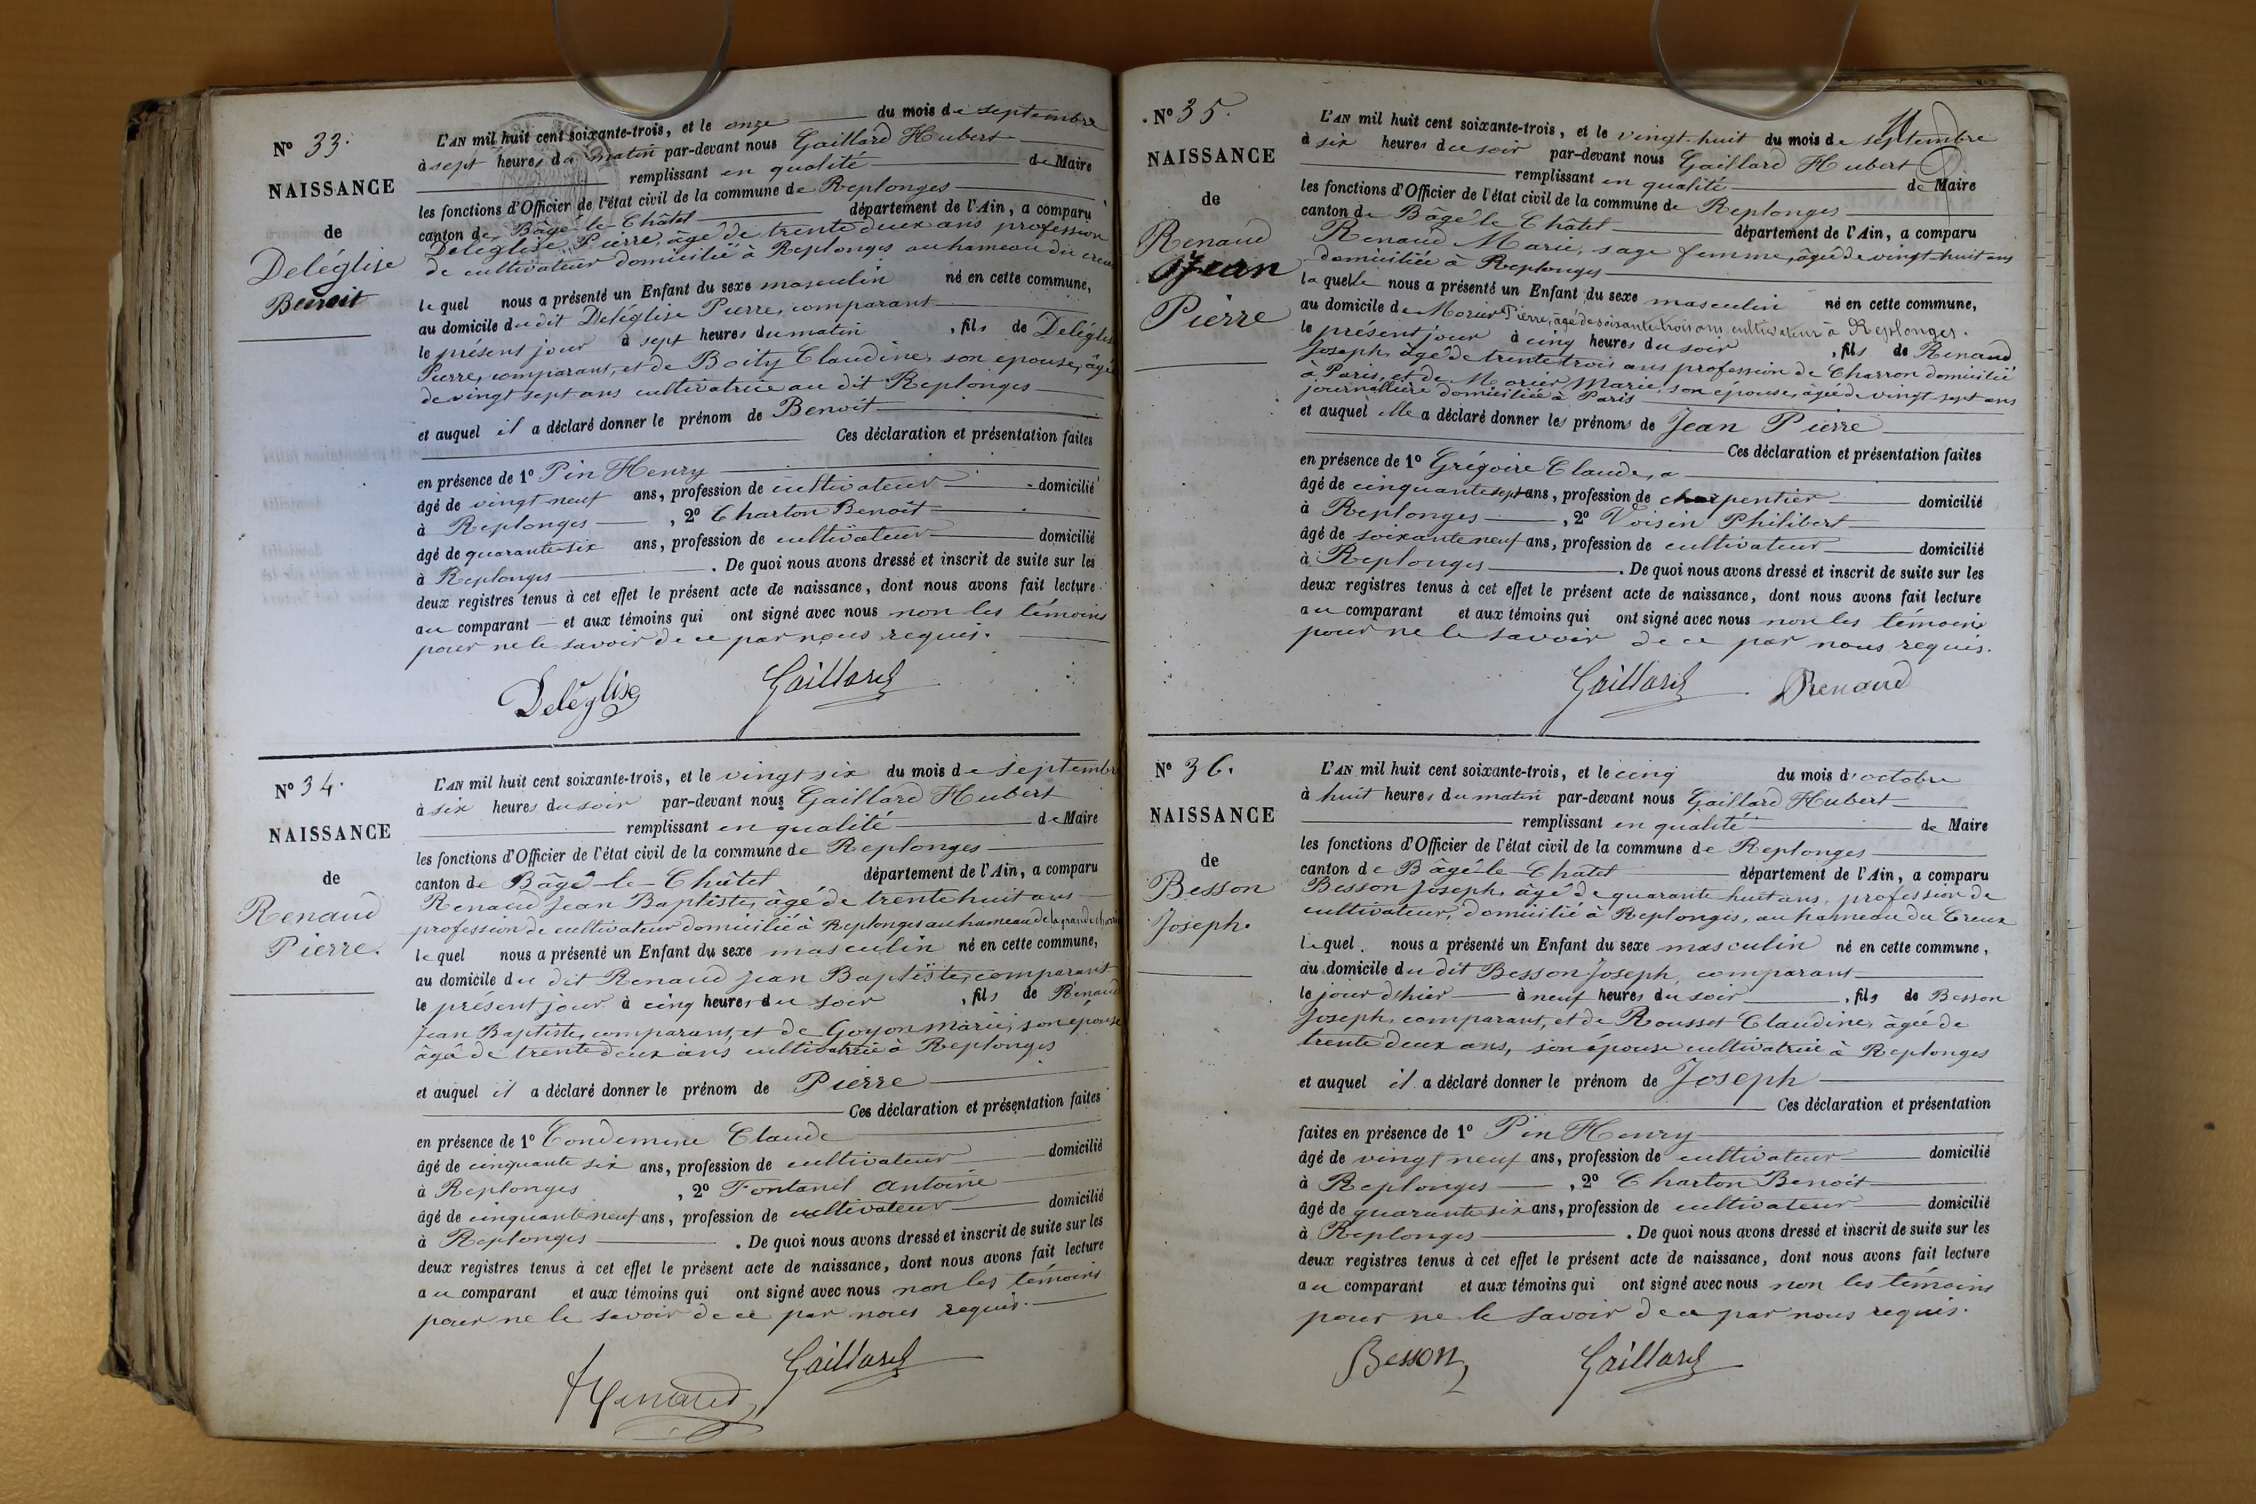 N° 33.
NAISSANCE
de
Deléglise
Benoit
L'AN mil huit cent soixante-trois, et le onze du mois de septembre
à sept heures du matin par-devant nous Gaillard Hubert
remplissant en qualité de Maire
les fonctions d'Officier de l'état civil de la commune de Replonges
canton de Bâgé-le-Châtel département de l'Ain, a comparu
Deléglise Pierre âgé de trente deux ans profession
de cultivateur domicilié à Replonges au hameau du creux
lequel nous a présenté un Enfant du sexe masculin né en cette commune,
au domicile du dit Deléglise Pierre, comparant
le présent jour à sept heures du matin, fils de Deléglise
Pierre, comparant, et de Boity Claudine, son épouse, âgée
de vingt sept ans cultivatrice au dit Replonges
et auquel il a déclaré donner le prénom de Benoit
Ces déclaration et présentation faites
en présence de 1° Pin Henry
âgé de vingt neuf ans, profession de cultivateur domicilié
à Replonges, 2° Charton Benoit
âgé de quarante six ans, profession de cultivateur domicilié
à Replonges. De quoi nous avons dressé et inscrit de suite sur les
deux registres tenus à cet effet le présent acte de naissance, dont nous avons fait lecture
au comparant et aux témoins qui ont signé avec nous non les témoins
pour ne le savoir de ce par nous requis.
Deléglise Gaillard
N° 34.
NAISSANCE
de
Renaud
Pierre.
L'AN mil huit cent soixante-trois, et le vingt six du mois de septembre
à six heures du soir par-devant nous Gaillard Hubert
remplissant en qualité de Maire
les fonctions d'Officier de l'état civil de la commune de Replonges
canton de Bâgé-le-Châtel département de l'Ain, a comparu
Renaud Jean Baptiste, âgé de trente huit ans
profession de cultivateur domicilié à Replonges au hameau de la grande
lequel nous a présenté un Enfant du sexe masculin né en cette commune,
au domicile du dit Renaud Jean Baptiste, comparant
le présent jour à cinq heures du soir, fils de Renaud
Jean Baptiste, comparant, et de Goyon Marie, son épouse
âgé de trente deux ans cultivatrice à Replonges
et auquel il a déclaré donner le prénom de Pierre
Ces déclaration et présentation faites
en présence de 1° Condemine Claude
âgé de cinquante six ans, profession de cultivateur domicilié
à Replonges, 2° Fontanel Antoine
âgé de cinquante neuf ans, profession de cultivateur domicilié
à Replonges. De quoi nous avons dressé et inscrit de suite sur les
deux registres tenus à cet effet le présent acte de naissance, dont nous avons fait lecture
au comparant et aux témoins qui ont signé avec nous non les témoins
pour ne le savoir de ce par nous requis.
Renaud Gaillard
N° 35.
NAISSANCE
de
Renaud
Jean
Pierre
L'AN mil huit cent soixante-trois, et le vingt-huit du mois de septembre
à six heures du soir par-devant nous Gaillard Hubert
remplissant en qualité de Maire
les fonctions d'Officier de l'état civil de la commune de Replonges
canton de Bâgé-le Châtel département de l'Ain, a comparu
Renaud Marie, sage femme, âgée de vingt-huit ans
domiciliée à Replonges
laquelle nous a présenté un Enfant du sexe masculin né en cette commune,
au domicile de Morier Pierre, âgé de soixante trois ans, cultivateur à Replonges.
le présent jour à cinq heures du soir, fils de Renaud
Joseph, âgé de trente trois ans profession de Charron domicilié
à Paris, et de Morier Marie, son épouse, âgée de vingt sept ans
journalière domiciliée à Paris
et auquel elle a déclaré donner les prénoms de Jean Pierre
Ces déclaration et présentation faites
en présence de 1° Grégoire Claude, a
âgé de cinquante sept ans, profession de charpentier domicilié
à Replonges, 2° Voisin Philibert
âgé de soixante neuf ans, profession de cultivateur domicilié
à Replonges. De quoi nous avons dressé et inscrit de suite sur les
deux registres tenus à cet effet le présent acte de naissance, dont nous avons fait lecture
au comparant et aux témoins qui ont signé avec nous non les témoins
pour ne le savoir de ce par nous requis.
Gaillard Renaud
N° 36.
NAISSANCE
de
Besson
Joseph.
L'AN mil huit cent soixante-trois, et le cinq du mois d'octobre
à huit heures du matin par-devant nous Gaillard Hubert
remplissant en qualité de Maire
les fonctions d'Officier de l'état civil de la commune de Replonges
canton de Bâgé-le Châtel département de l'Ain, a comparu
Besson Joseph, âgé de quarante huit ans, profession de
cultivateur, domicilié à Replonges, au hameau du Creux
lequel nous a présenté un Enfant du sexe masculin né en cette commune,
au domicile du dit Besson Joseph, comparant
le jour d'hier à neuf heures du soir, fils de Besson
Joseph, comparant, et de Rousset Claudine, âgée de
trente deux ans, son épouse cultivatrice à Replonges
et auquel il a déclaré donner le prénom de Joseph
Ces déclaration et présentation
faites en présence de 1° Pin Henry
âgé de vingt neuf ans, profession de cultivateur domicilié
à Replonges, 2° Charton Benoit
âgé de quarante six ans, profession de cultivateur domicilié
à Replonges. De quoi nous avons dressé et inscrit de suite sur les
deux registres tenus à cet effet le présent acte de naissance, dont nous avons fait lecture
au comparant et aux témoins qui ont signé avec nous non les témoins
pour ne le savoir de ce par nous requis.
Besson Gaillard